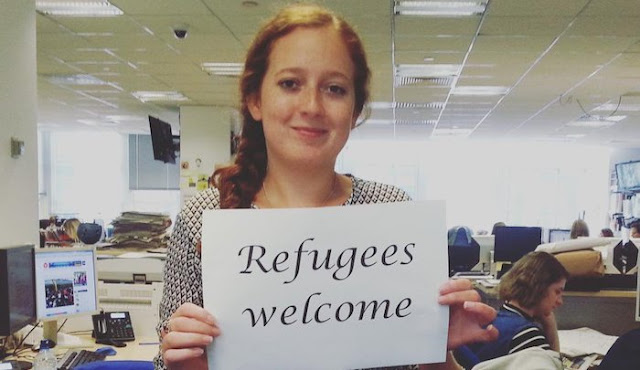 Refugees
welcome